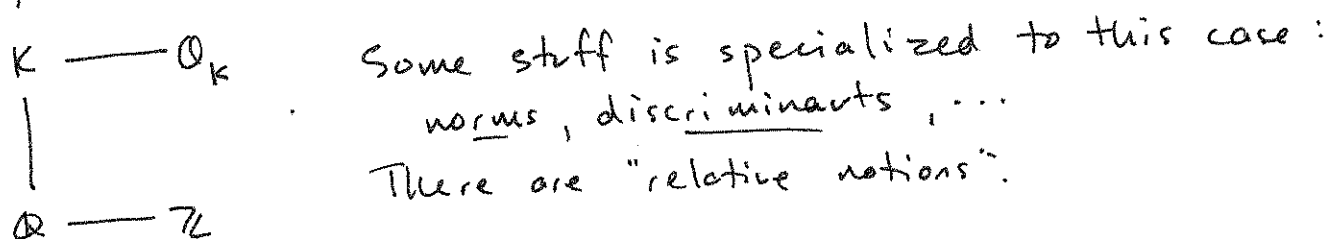 K — O_K Some stuff is specialized to this case:
norms, discriminants, ...
There are "relative notions".
Q — Z